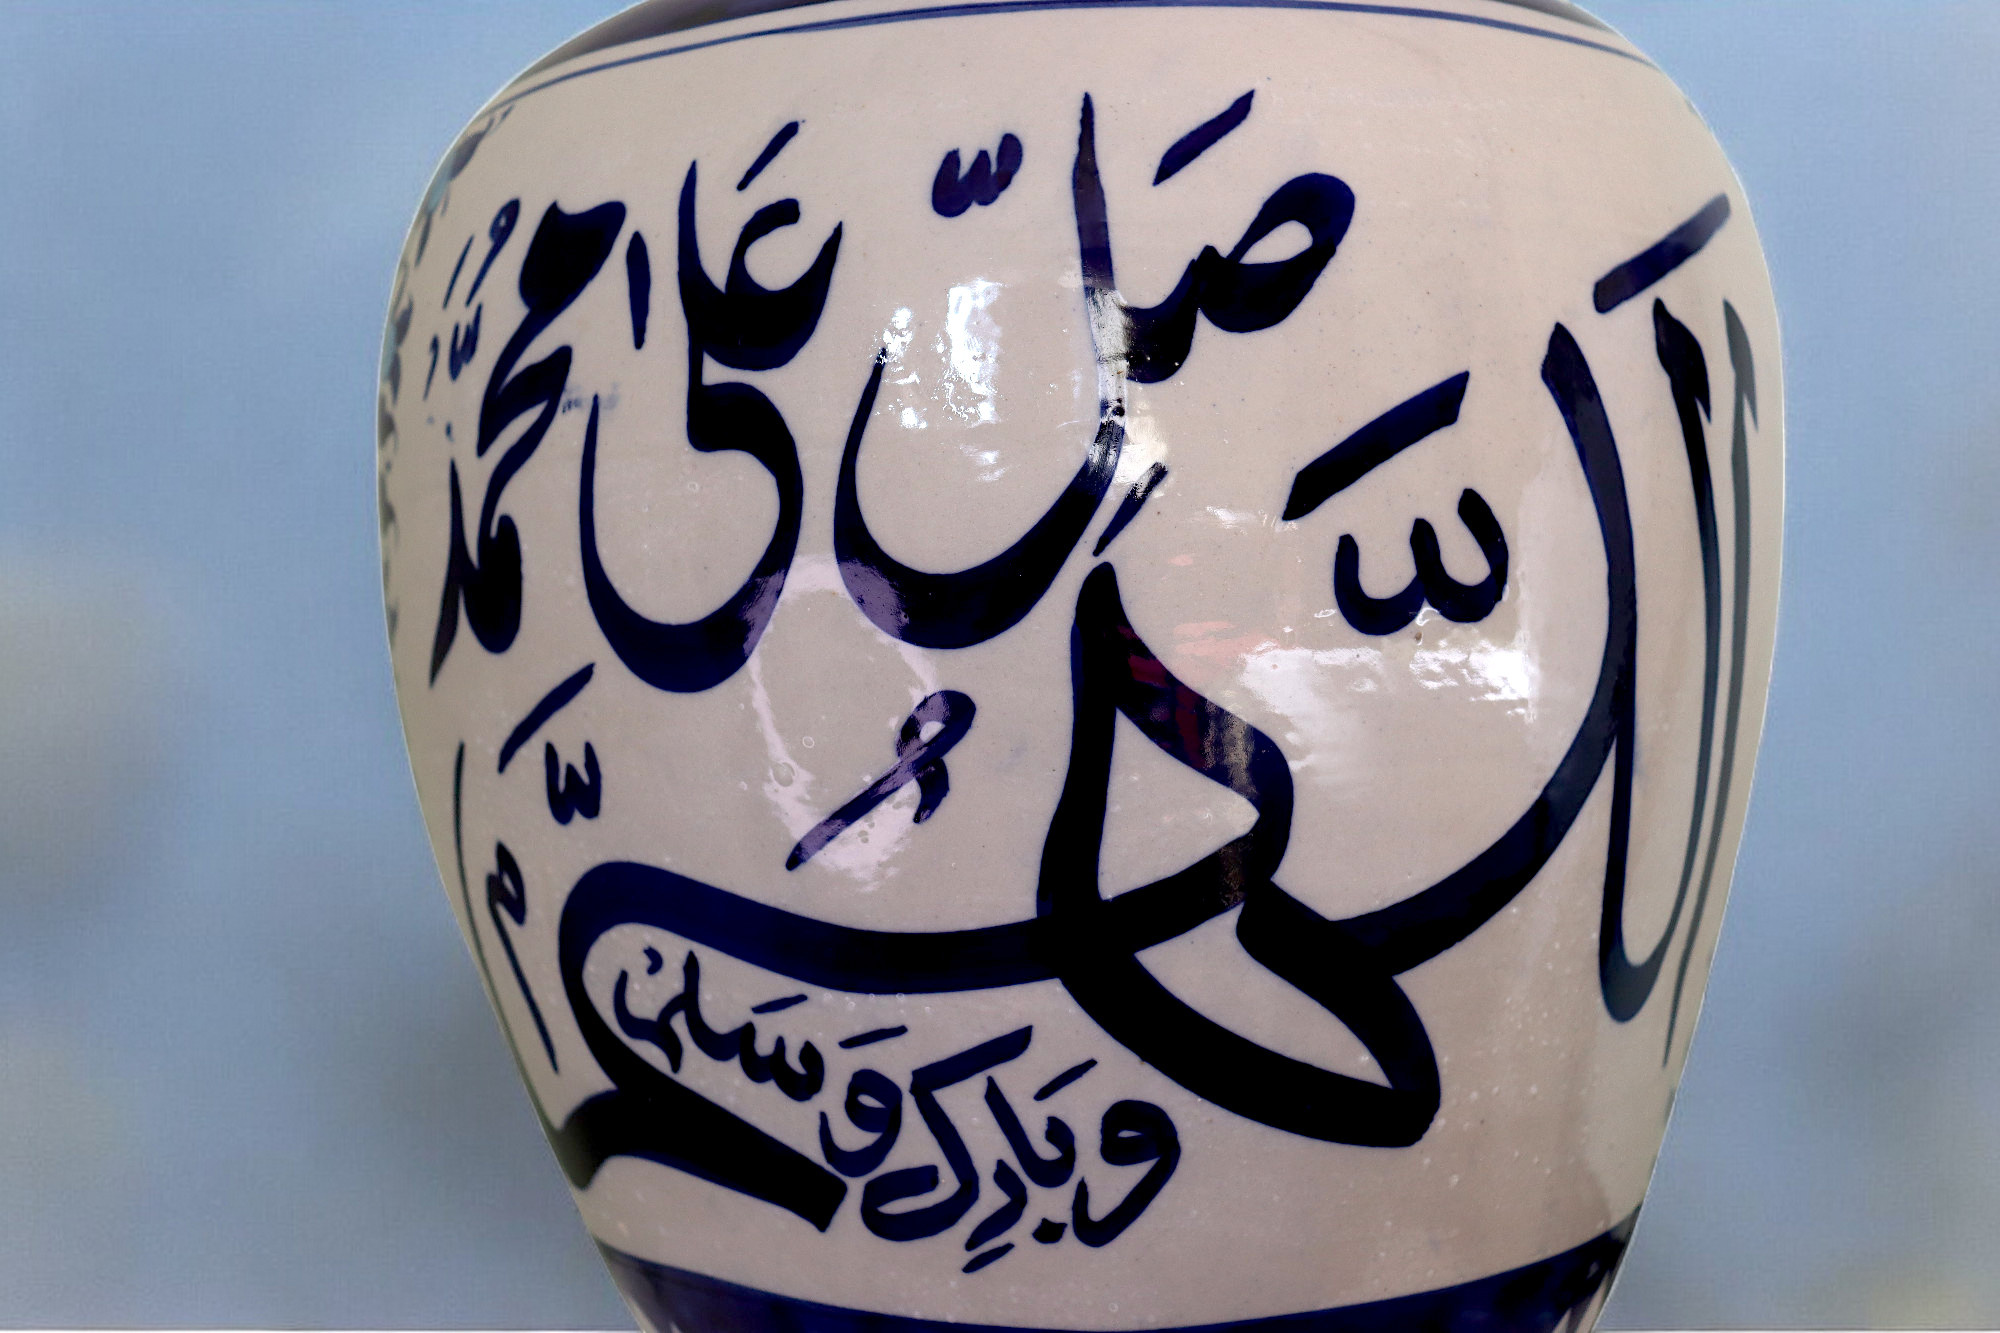 اَللّٰهُمَّ
صَلِّ عَلٰی مُحَمَّد
وَبَارِك وَسَلِّم